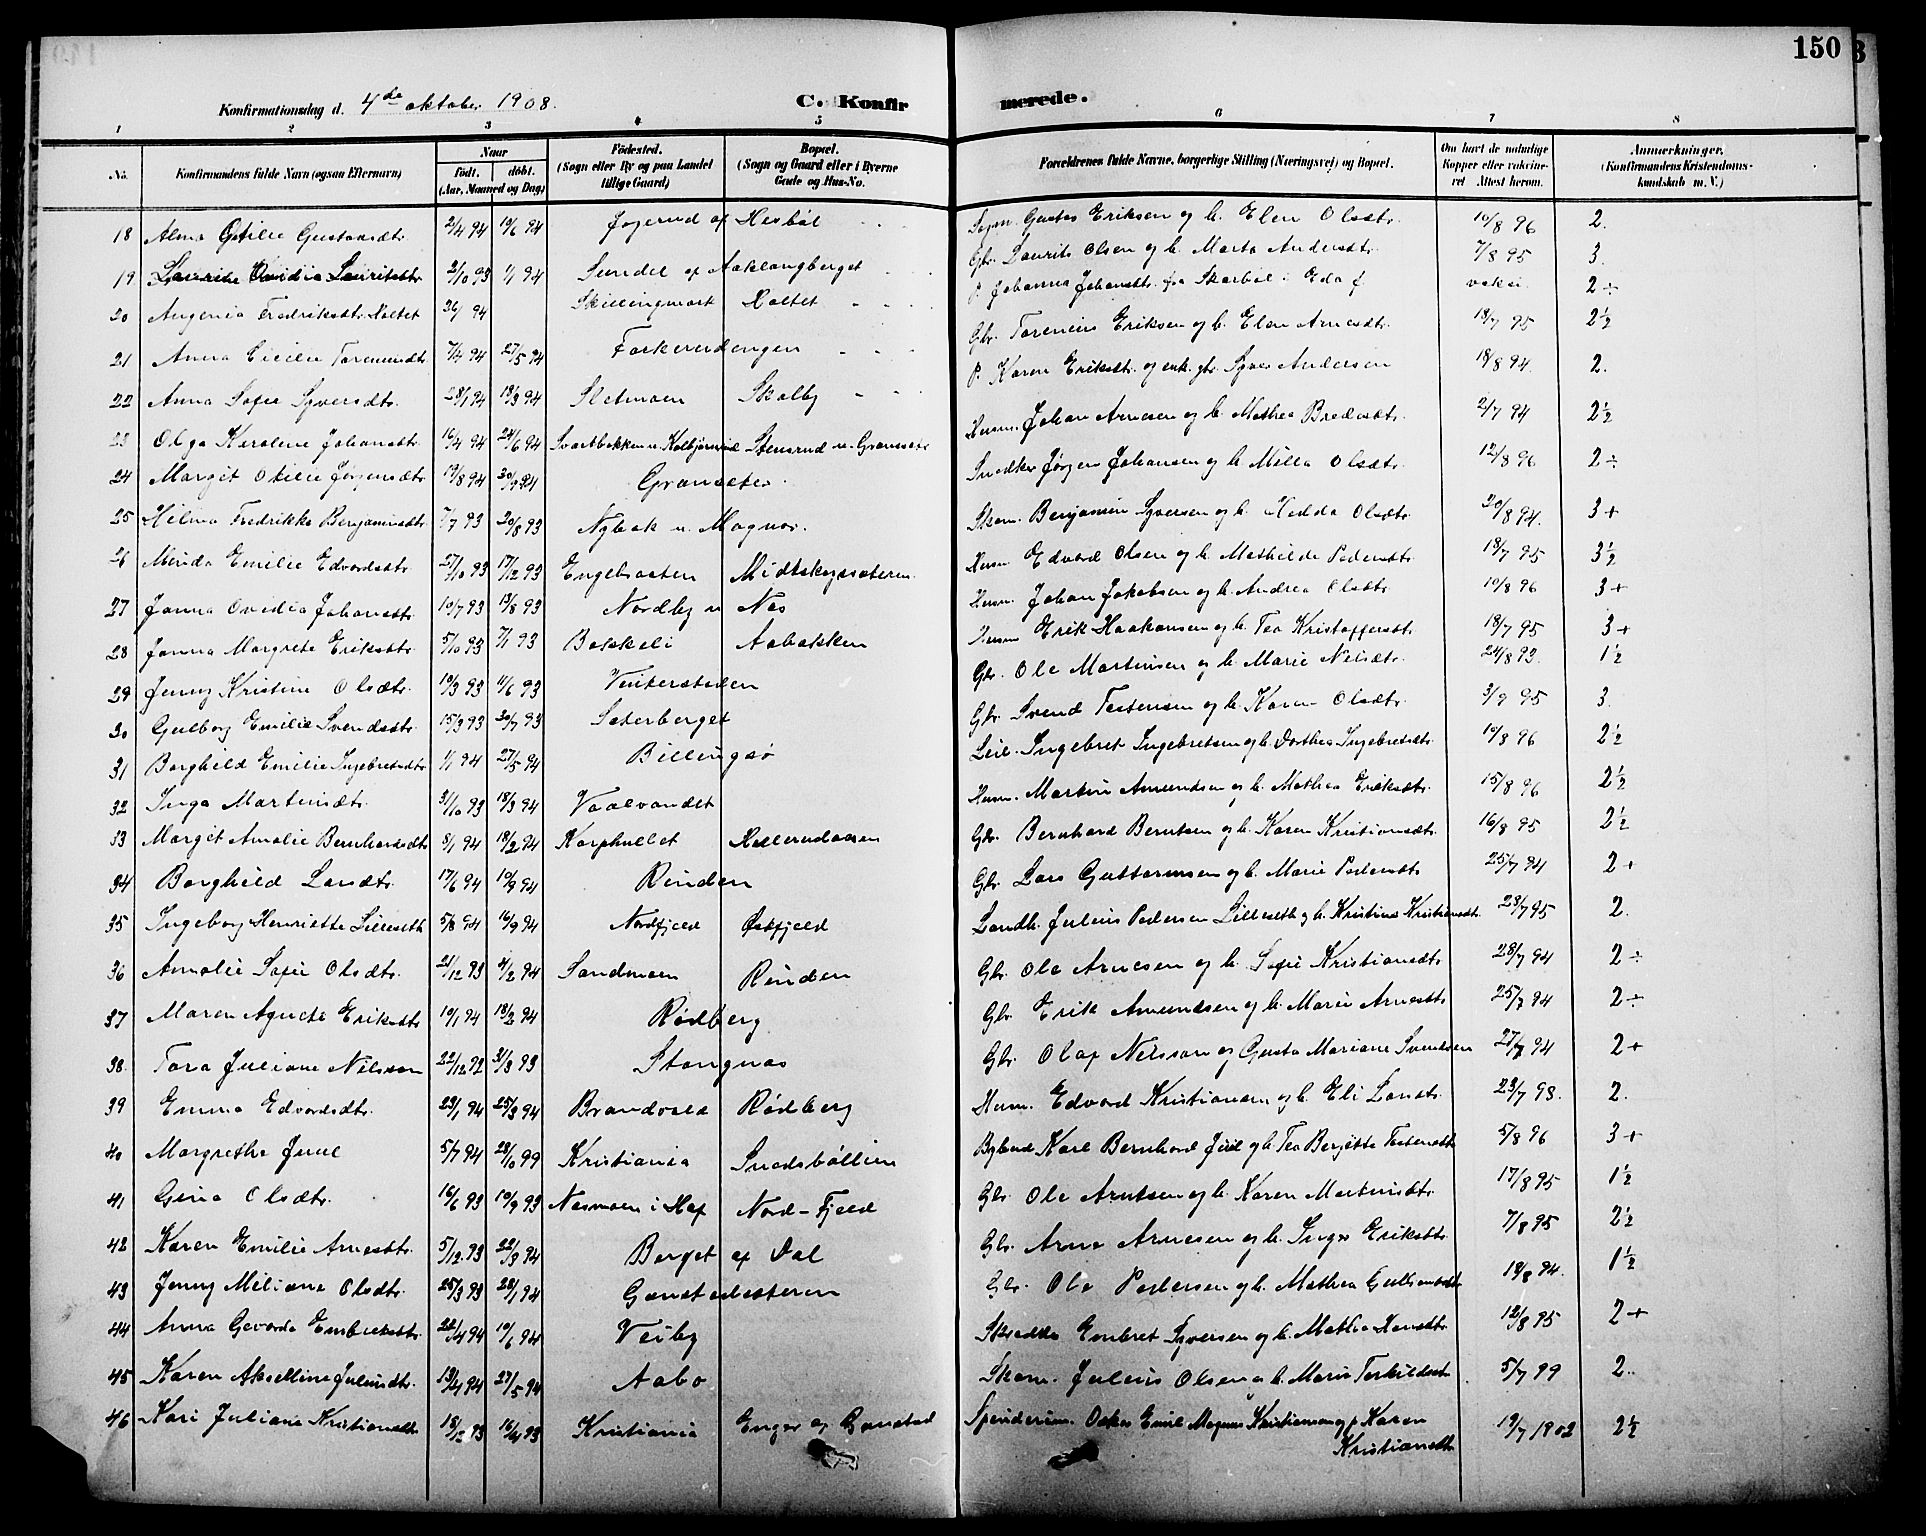 150
Konfirmationsdag d. 4de oktober 1908. C. Konfir merede.
1 2 3 4 5 6 7 8
No. Konfirmandens fulde Navn (ogsaa Efternavn) Naar født. døbt. (Aar, Maaned og Dag) Fødested. (Sogn eller By og paa Landet tillige Gaard) Bopæl. (Sogn og Gaard eller i Byerne Gade og Hus-No. Forældrenes fulde Navne, borgerlige Stilling (Næringsvej) og Bopæl. Om havt de naturlige Kopper eller vaccineret Attest herom. Anmerkninger. (Konfirmandens Kristendomskundskab m. V.)
18 Alma Otilie Gustavsdtr. 2/4 94 10/6 94 Jøgerud af Hesbøl Gustav Eriksen og h. Elen Olsdtr. 10/8 96 2.
19 Laurine Ovidia Lauritsdtr. 2/10 93 1/1 94 Sundet af Aaklangberget Gbr. Laurits Olsen og h. Marta Andersdtr. 7/8 95 3.
20 Augenia Fredriksdtr. Holtet 26/1 94 Skillingmark Holtet P. Johanna Johansdtr. fra Skarbøl i Eda f. 2÷
21 Anna Cicilie 7/4 94 27/5 94 Gbr. Eriksen og h. Elen Arnesdtr. 18/7 95 2½
22 Anna Sofie Syversdtr. 28/1 94 18/3 94 Sletmoen Skolby P. Karen Eriksdtr. og enk. gbr. Syver Andersen 18/8 94. 2.
23 Olga Karoline Johansdtr. 16/4 94 24/6 94 Svartbakken u. Kolbjørnrud Stensrud u. Granseter Husm. Johan Arnesen og h. Mathea Bredesdtr. 2/7 94 2½
24 Margit Otilie Jørgensdtr. 19/8 94 30/9 94 Granseter. Snedker Jørgen Johansen og h. Milla Olsdtr. 12/8 96 2÷
25 Hilma Fredrikke Benjaminsdtr. 7/7 93 20/8 93 Nybak u. Magnor. Skom. Benjamin Syversen og h. Hedda Olsdtr. 20/8 94. 3+
26 Minda Emilie Edvardsdtr. 27/10 93 17/12 93 Engebraaten Midtskogsæteren. Husm Edvard Olsen og h. Mathilde Pedersdtr. 18/7 95 3½
27 Janna Ovidia Johansdtr. 10/7 93 13/8 93 Nordby u Nes Husm. Johan Jakobsen og h. Andrea Olsdtr. 10/8 96 3+
28 Janna Margrete Eriksdtr. 5/10 93 7/1 93 Bakkeli Aabakken Husm Erik Haakonsen og h. Tea Kristoffersdtr. 18/7 95 3+
29 Jenny Kristine Olsdtr. 10/3 93 11/6 93 Gbr. Ole Martinsen og h. Marie Nilsdtr. 24/8 93. 1½
30 Gulborg Emilie Svendsdtr. 15/3 93 30/7 93 Sæterberget Gbr. Svend Torstensen og h. Karen Olsdtr. 3/9 95 3.
31 Borghild Emilie Ingebretsdtr. 1/1 94 27/5 94 Billingsø Leil. Ingebret Ingebretsen og h. Dorthea Ingebretsdtr. 10/8 96 2½
32 Inga Martinsdtr. 31/10 93 18/3 94 Vaalvandet Husm. Martin Amundsen og h. Mathea Eriksdtr. 15/8 96 2½
33 Margit Amalie Bernhardsdtr 8/1 94 18/2 94 Karphullet Hellerudaasen Gbr. Bernhard Berntsen og h. Karen Kristiansdtr. 16/8 95 2½
34 Borghild Larsdtr. 17/6 94 10/9 94 Rinden Gbr. Lars Guttormsen og h. Marie Pedersdtr. 25/7 94 2+
35 Ingeborg Henriette Lilleseth 5/8 94 16/9 94 Nordfjeld Østfjeld Landh. Julius Pedersen Lilleseth og h. Kristine Kristiansdtr. 23/7 95 2.
36 Amalie Sofie Olsdtr. 21/12 93 4/2 94 Sandmoen Rinden Gbr. Ole Arnesen og h. Sofie Kristiansdtr. 28/7 94 2÷
37 Maren Agnete Eriksdtr. 10/1 94 18/2 94 Rødberg Gbr. Erik Amundsen og h. Marie Arnesdtr. 25/7 94 2÷
38. Tora Juliane Nilsson 22/12 92 31/3 93 Stangnes Gbr. Olaf Nilsson og Gusta Mariane Svendsen 27/7 94 2+
39 Emma Edvardsdtr. 23/1 94 25/3 94 Brandvold Rødberg Husm. Edvard Kristiansen og h. Eli Larsdtr. 23/7 98. 2.
40 Margrethe Juul 5/7 94 28/10 99 Kristiania Snedsbøllien Bybud Karl Bernhard Juul og h. Tea Bergitte Torstensdtr. 5/8 96 3+
41 Gina Olsdtr. 16/6 93 10/9 93 Nesmoen i Hof Nord-Fjeld Gbr. Ole Arntsen og h. Karen Martinsdtr. 17/8 95 1½
42 Karen Emilie Arnesdtr. 5/12 93 22/3 94 Berget af Dal Gbr. Arne Arnesen og h. Inger Eriksdtr. 7/8 95 2½
43 Jenny Miliane Olsdtr. 25/3 93 28/1 94 Gbr. Ole Pedersen og h. Mathea 18/8 94. 1½
44 Anna Gevarda Embretsdtr. 22/4 94 10/6 94 Veiby Skrædder Embret Syversen og h. Mathea Hansdtr. 12/8 95 2+
45 Karen Akselline Juliusdtr. 13/4 94 27/5 94 Aabo Skom. Julius Olsen og h. Marie Torkildsdtr. 5/7 99 2.
46 Kari Juliane Kristiansdtr 18/12 93 16/4 93 Kristiania Enger og Gonstad Oskar Emil Magnus Kristiansen og p. Karen Kristiansdtr 19/7 1902 2½